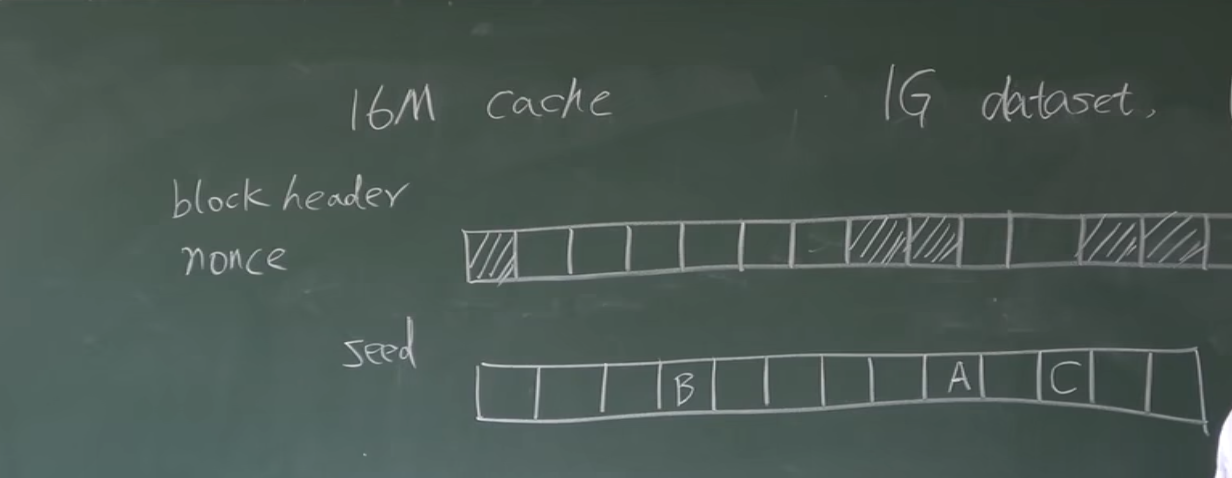 16M cache 1G dataset,
block header
nonce
seed
B A C